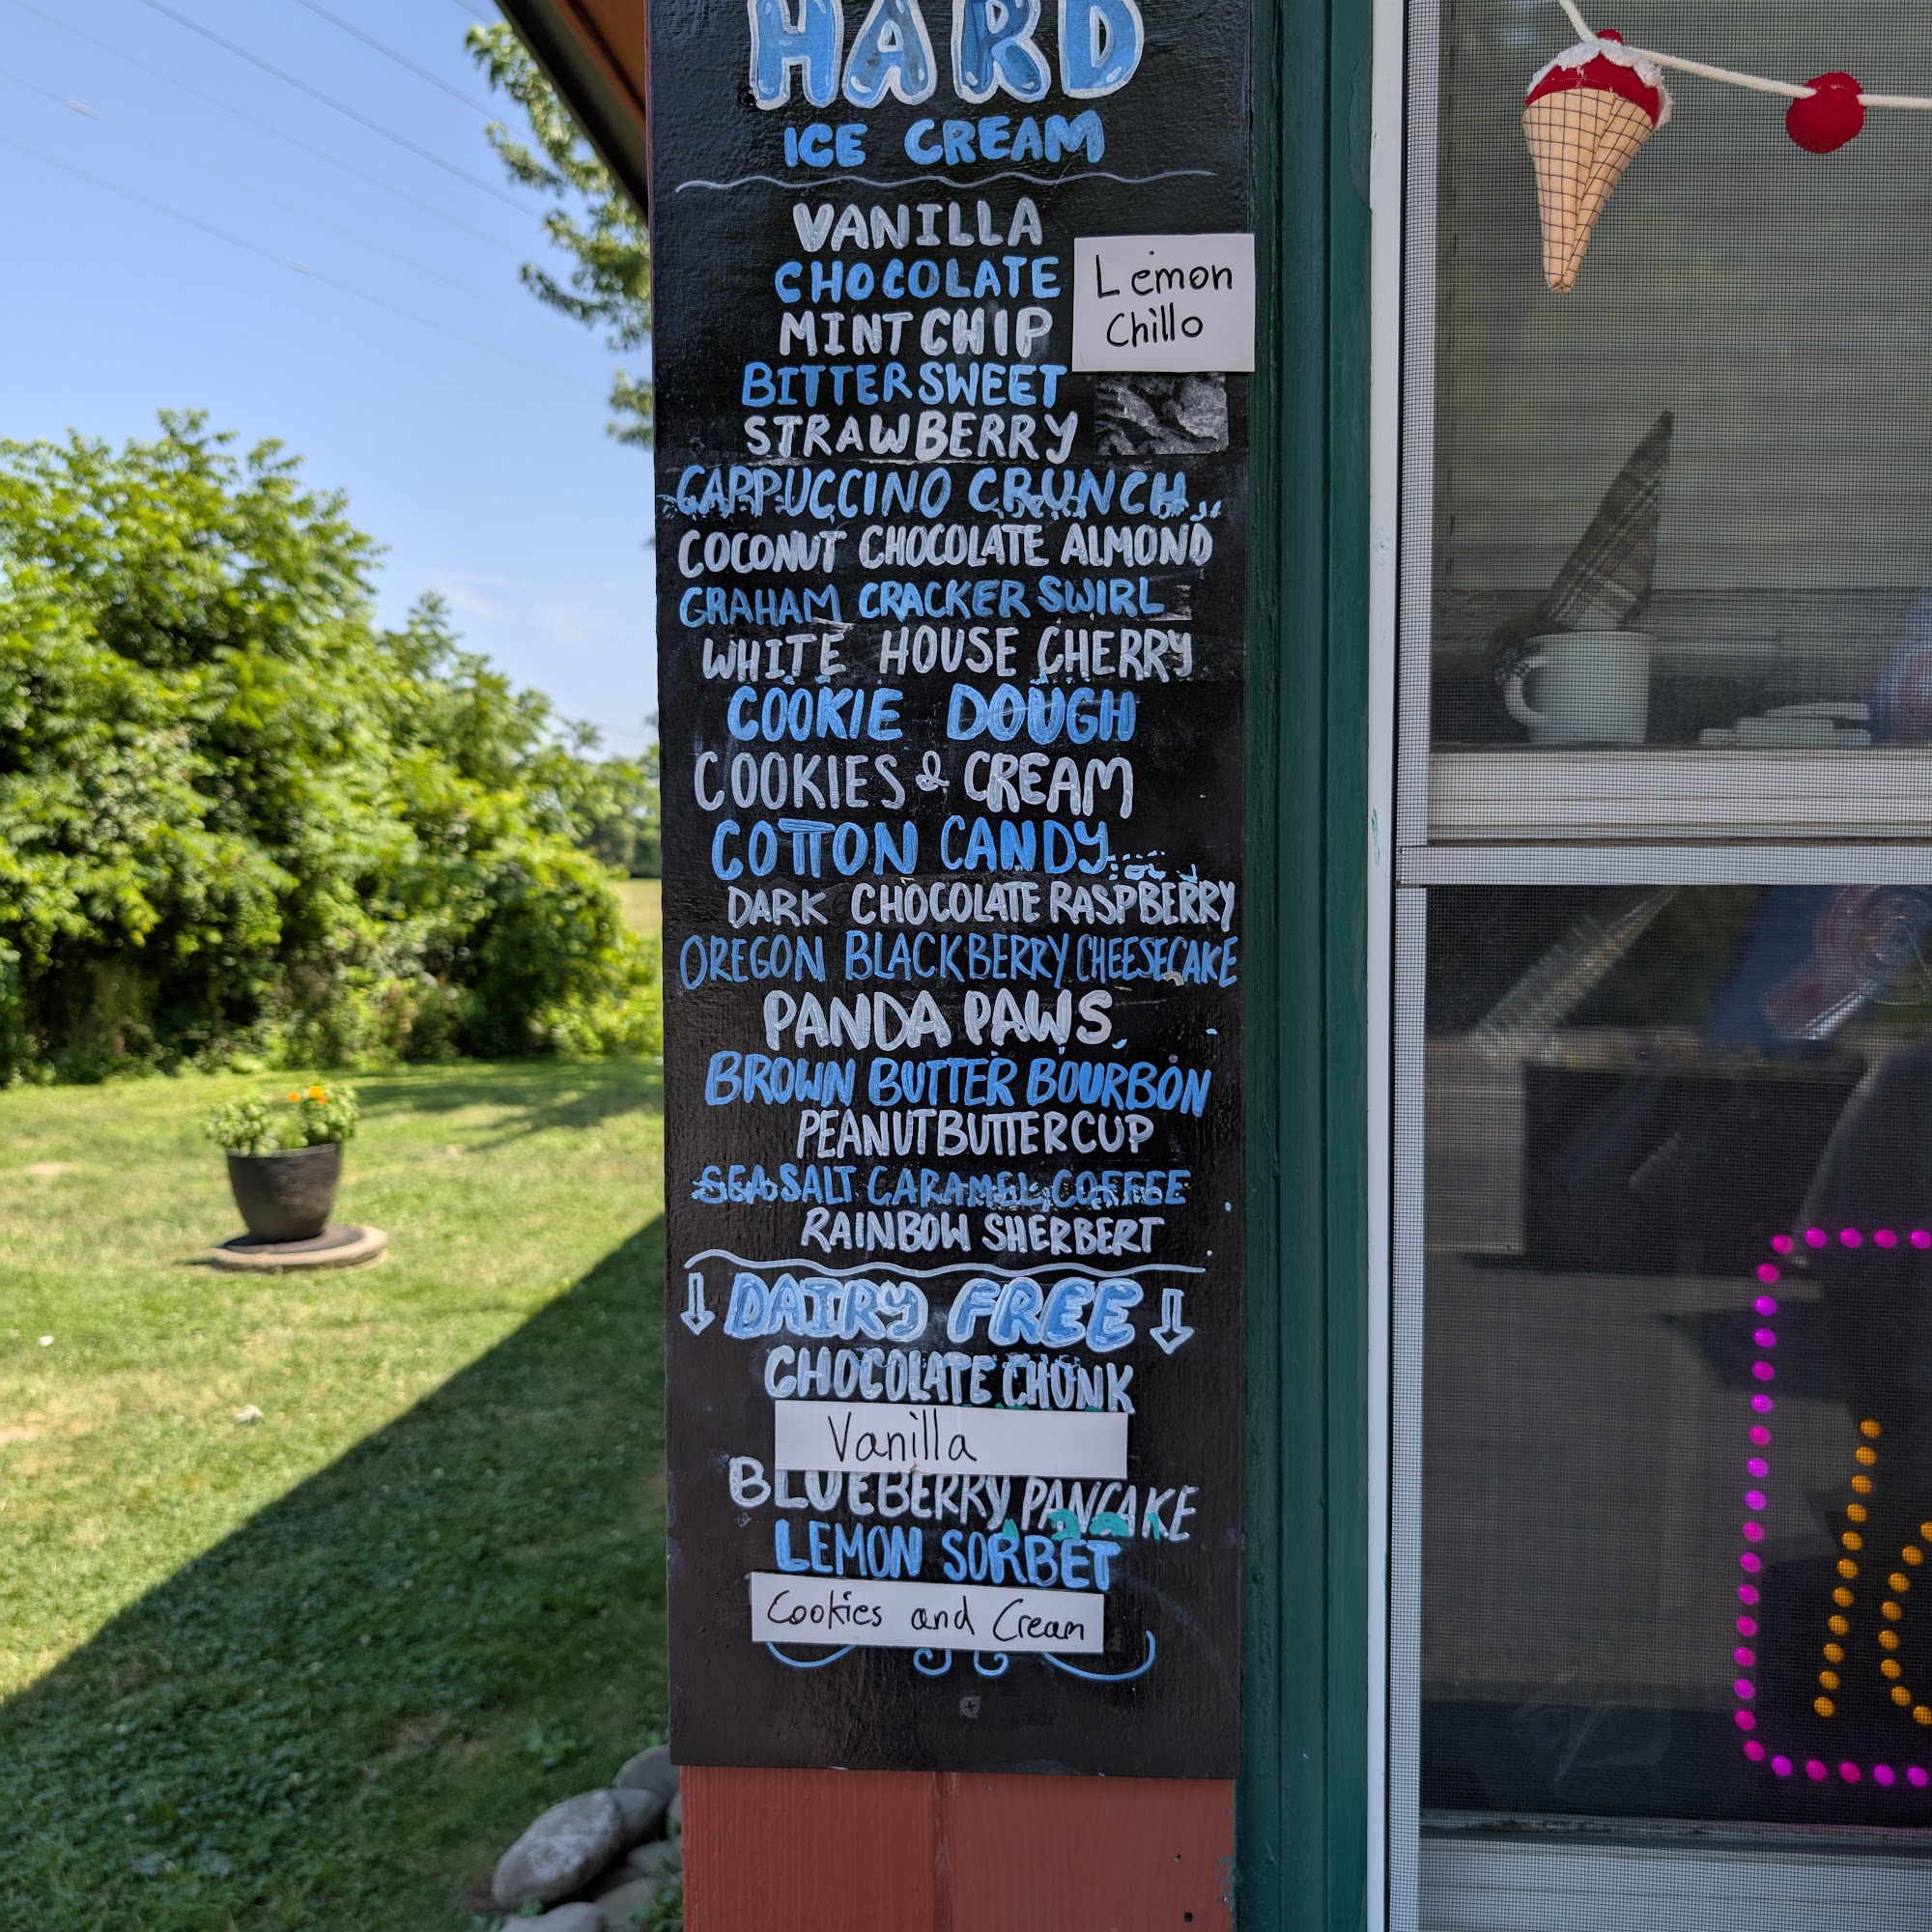 HARD
ICE CREAM
VANILLA
CHOCOLATE
MINT CHIP
Lemon
Chillo
BITTERSWEET
STRAWBERRY
CAPPUCCINO CRUNCH
COCONUT CHOCOLATE ALMOND
GRAHAM CRACKER SWIRL
WHITE HOUSE CHERRY
COOKIE DOUGH
COOKIES & CREAM
COTTON CANDY
DARK CHOCOLATE RASPBERRY
OREGON BLACKBERRY CHEESECAKE
PANDA PAWS
BROWN BUTTER BOURBON
PEANUT BUTTER CUP
SEA SALT CARAMEL COFFEE
RAINBOW SHERBERT
↓ DAIRY FREE ↓
CHOCOLATE CHUNK
Vanilla
BLUEBERRY PANCAKE
LEMON SORBET
Cookies and Cream